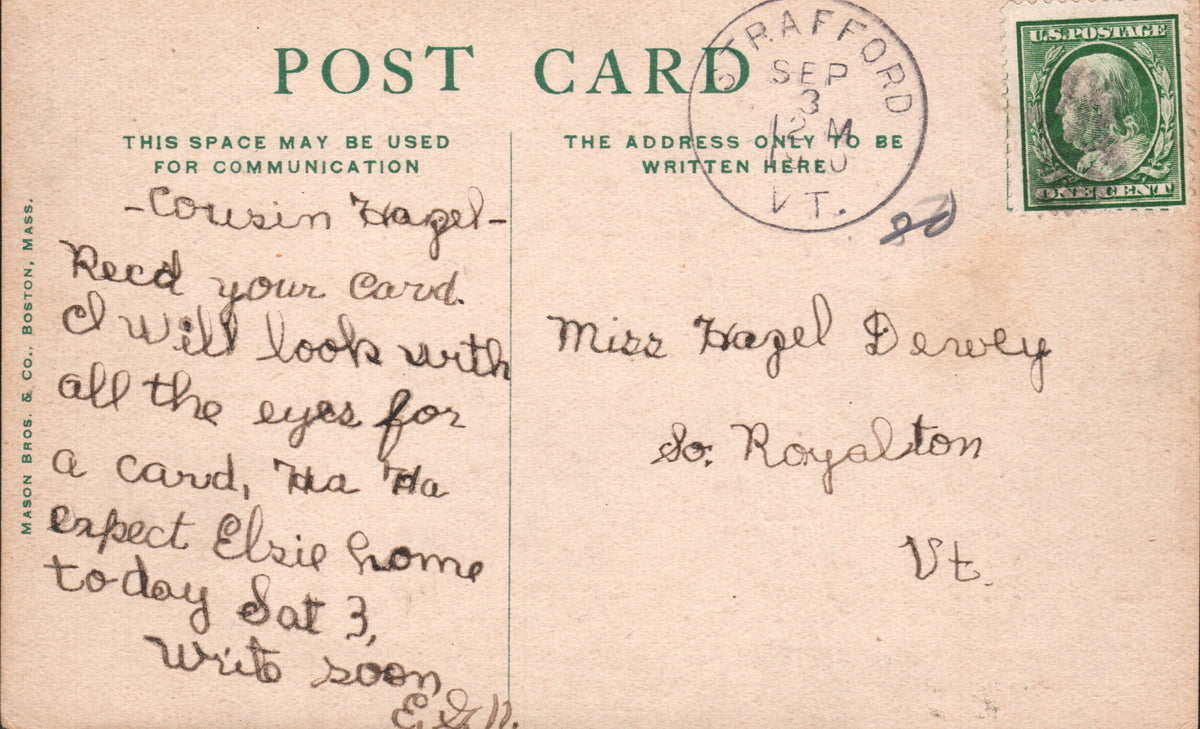 POST CARD
THIS SPACE MAY BE USED
FOR COMMUNICATION
THE ADDRESS ONLY TO BE
WRITTEN HERE
STRAFFORD
SEP
3
12 M
VT.
U.S. POSTAGE
ONE CENT
MASON BROS. & CO., BOSTON, MASS.
-Cousin Hazel-
Recd your card.
I will look with
all the eyes for
a card, Ha Ha
expect Elsie home
today Sat 3,
Write soon
Miss Hazel Dewey
So. Royalton
Vt.